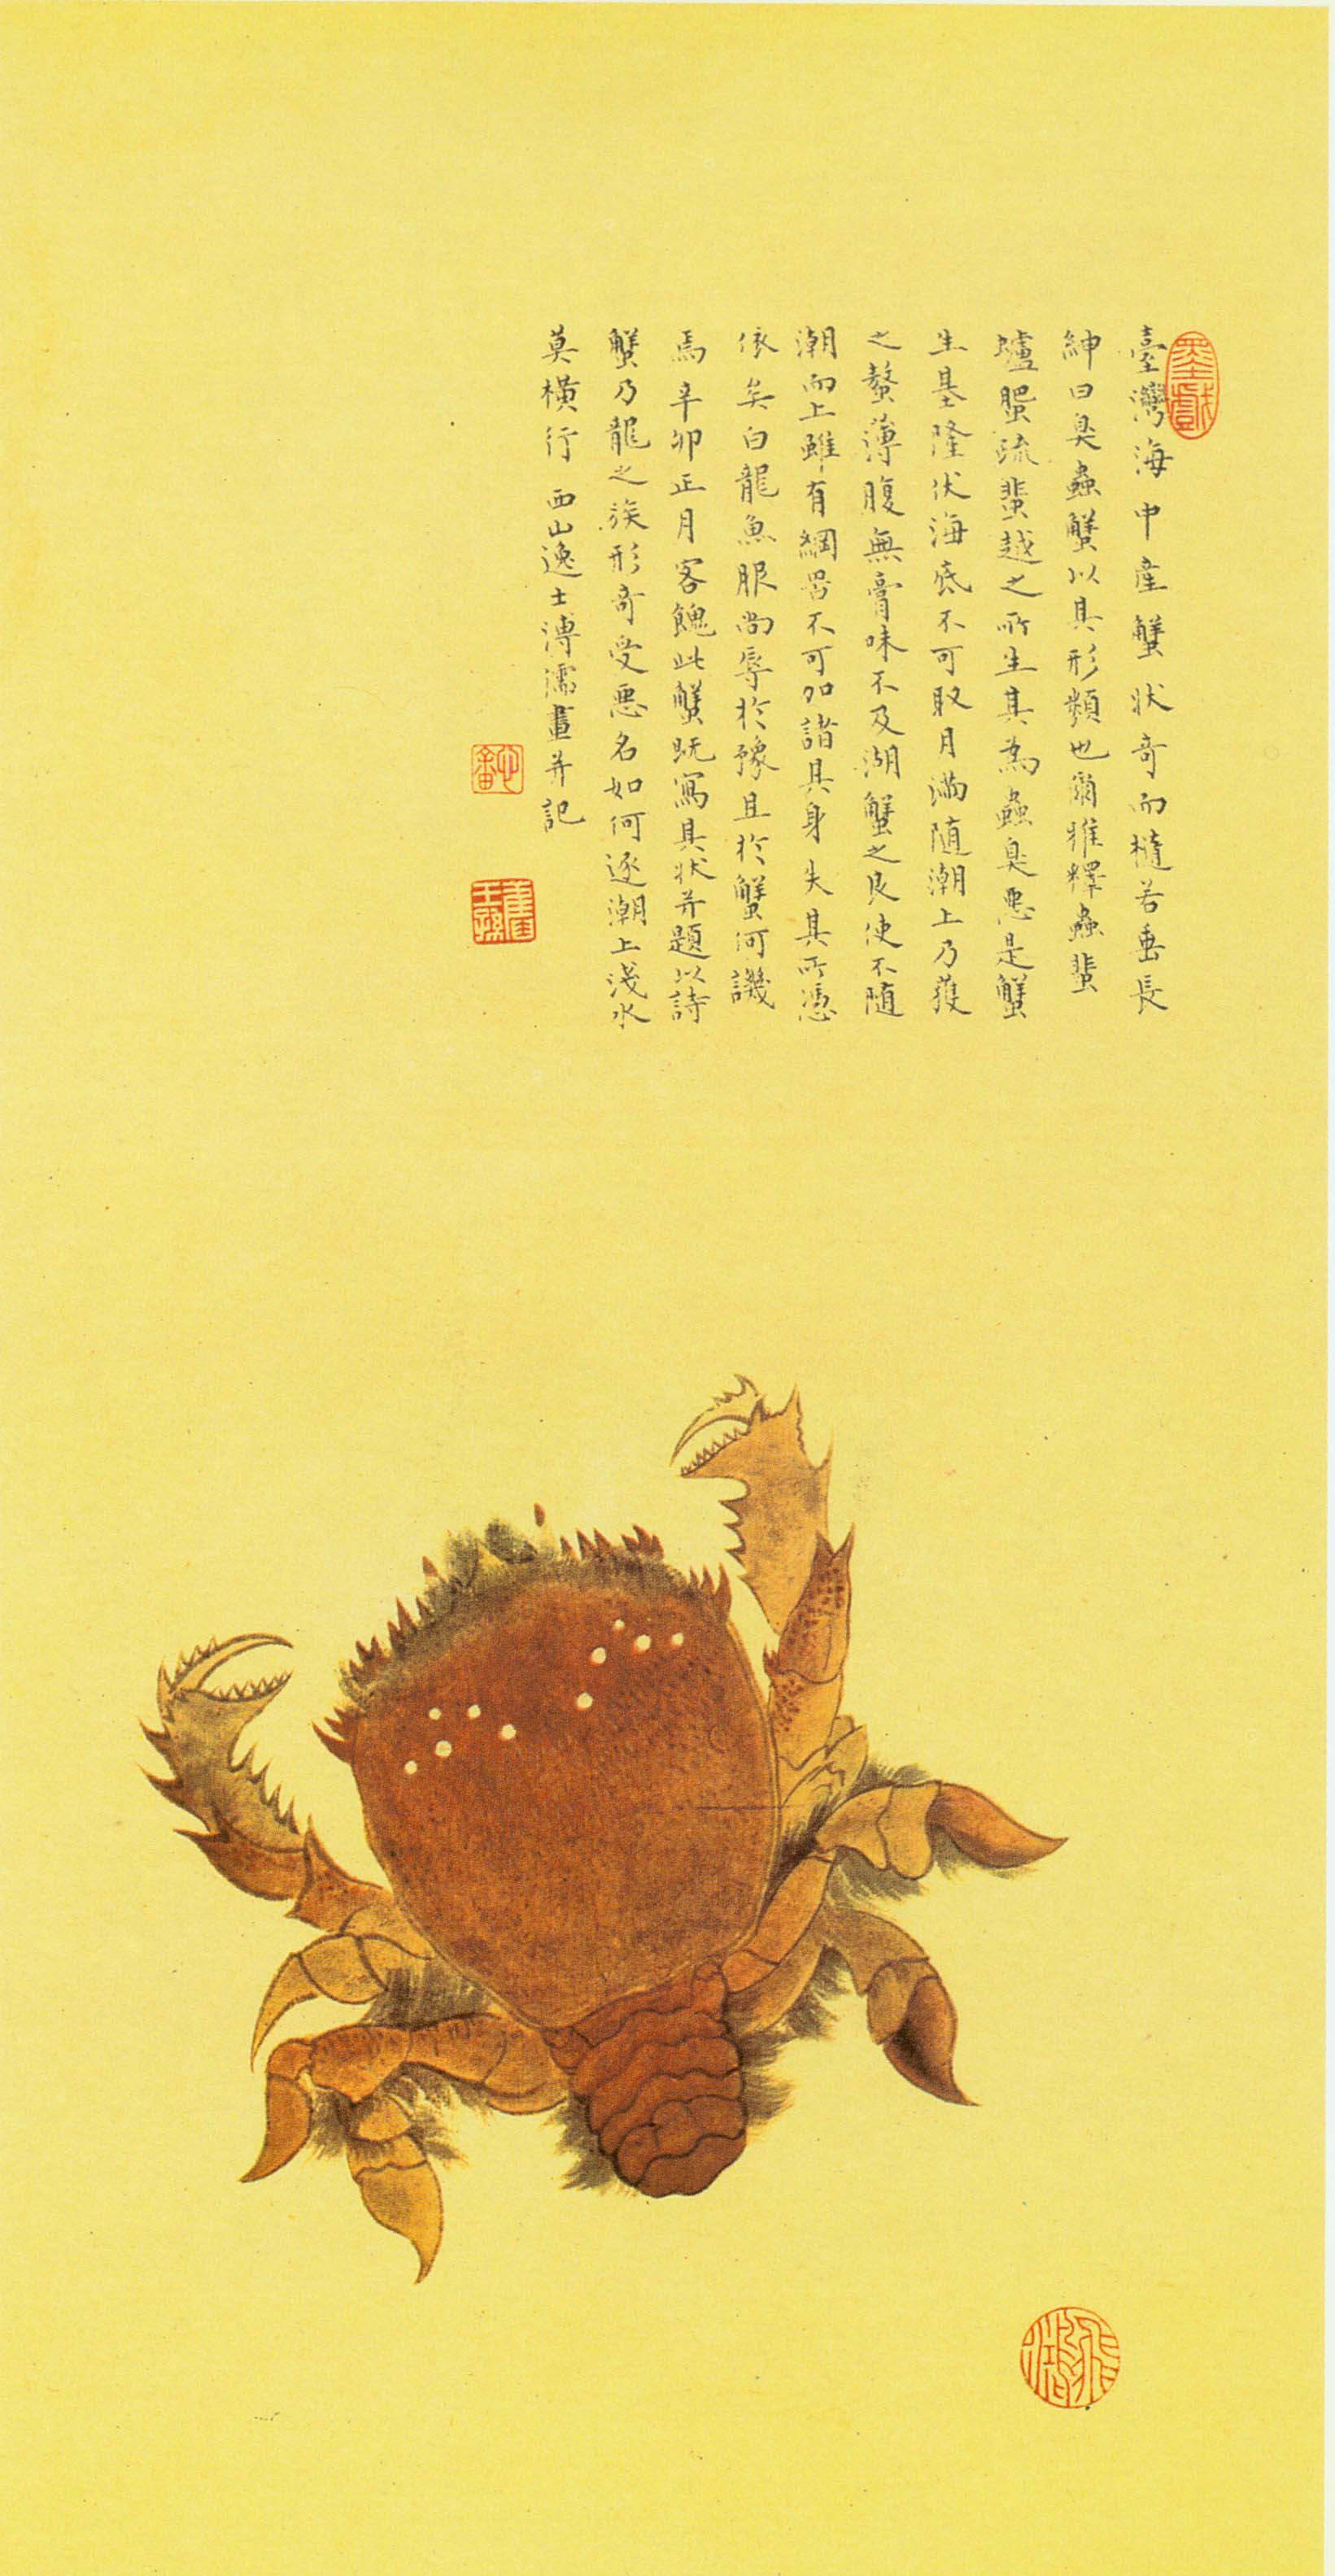 臺灣海中產蟹狀奇而橢若垂長
紳曰臭蟲蟹以其形類也爾雅釋蟲蜚
蠦蜰疏蜚越之所生其為蟲臭惡是蟹
生基隆伏海底不可取月滿随潮上乃獲
之螯薄腹無膏味不及湖蟹之良使不随
潮而上雖有網罟不可加諸其身失其所憑
依矣白龍魚服尚辱於豫且於蟹何譏
焉辛卯正月客餽此蟹既寫其状并題以詩
蟹乃龍之族形奇受惡名如何逐潮上淺水
莫橫行 西山逸士溥儒畫并記
墨戲
心畬
舊王孫
飛鴻